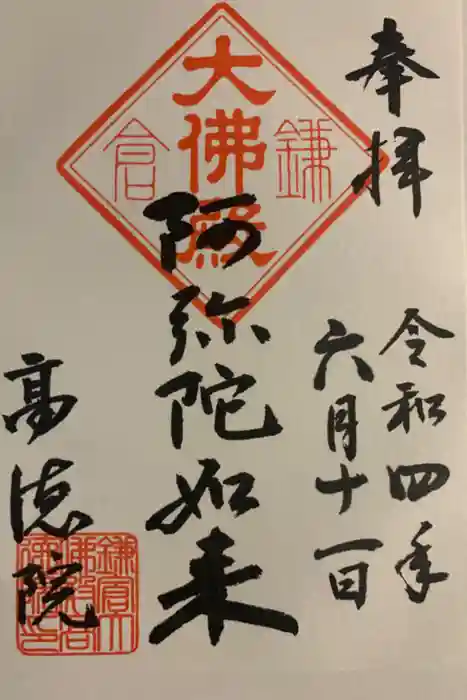 奉拝
令和四年
六月十一日
鎌倉
大佛殿
阿弥陀如来
高徳院